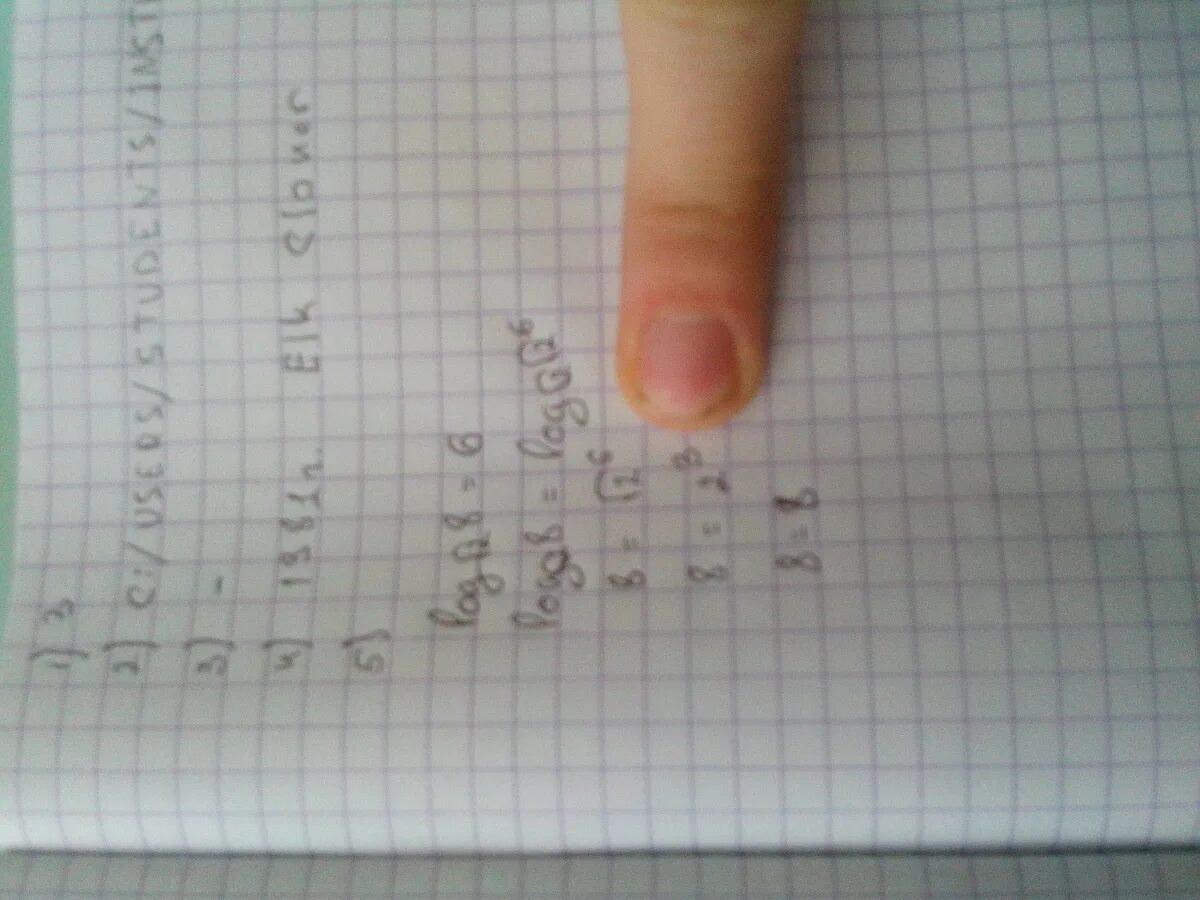 1) 3
2) C:/USEDS/STUDENTS/INST
3) -
4) 1981г. Elk Cloner
5)
log√2 8 = 6
log√2 8 = log√2 √2⁶
8 = √2⁶
8 = 2³
8 = 8